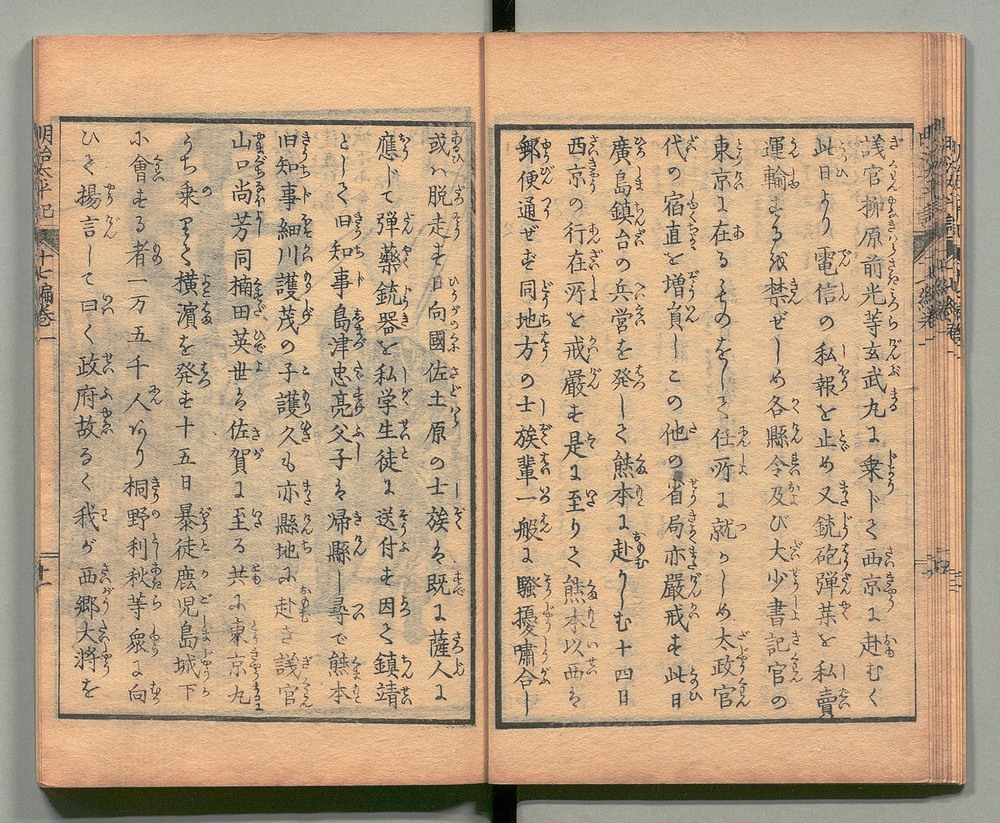 議官柳原前光等玄武丸に乗じて西京に赴むく
此日より電信の私報を止め又銃砲弾薬を私賣
運輸するを禁ぜしめ各縣令及び大少書記官の
東京に在るものをして任所に就かしめ太政官
代の宿直を増員しこの他の省局亦嚴戒す此日
廣島鎮台の兵営を発して熊本に赴かしむ十四日
西京の行在所を戒嚴す是に至りて熊本以西は
郵便通ぜず同地方の士族輩一般に騒擾嘯合し
或ハ脱走す日向國佐土原の士族は既に薩人に
應じて弾藥銃器を私学生徒に送付す因て鎮靖
として旧知事島津忠亮父子は帰縣し尋で熊本
旧知事細川護茂の子護久も亦縣地に赴き議官
山口尚芳同楠田英世は佐賀に至る共に東京丸
うち乗りて横濱を発す十五日暴徒鹿児島城下
に會する者一万五千人あり桐野利秋等衆に向
ひて揚言して曰く政府故なく我が西郷大将を
明治太平記 十七編巻一 十一